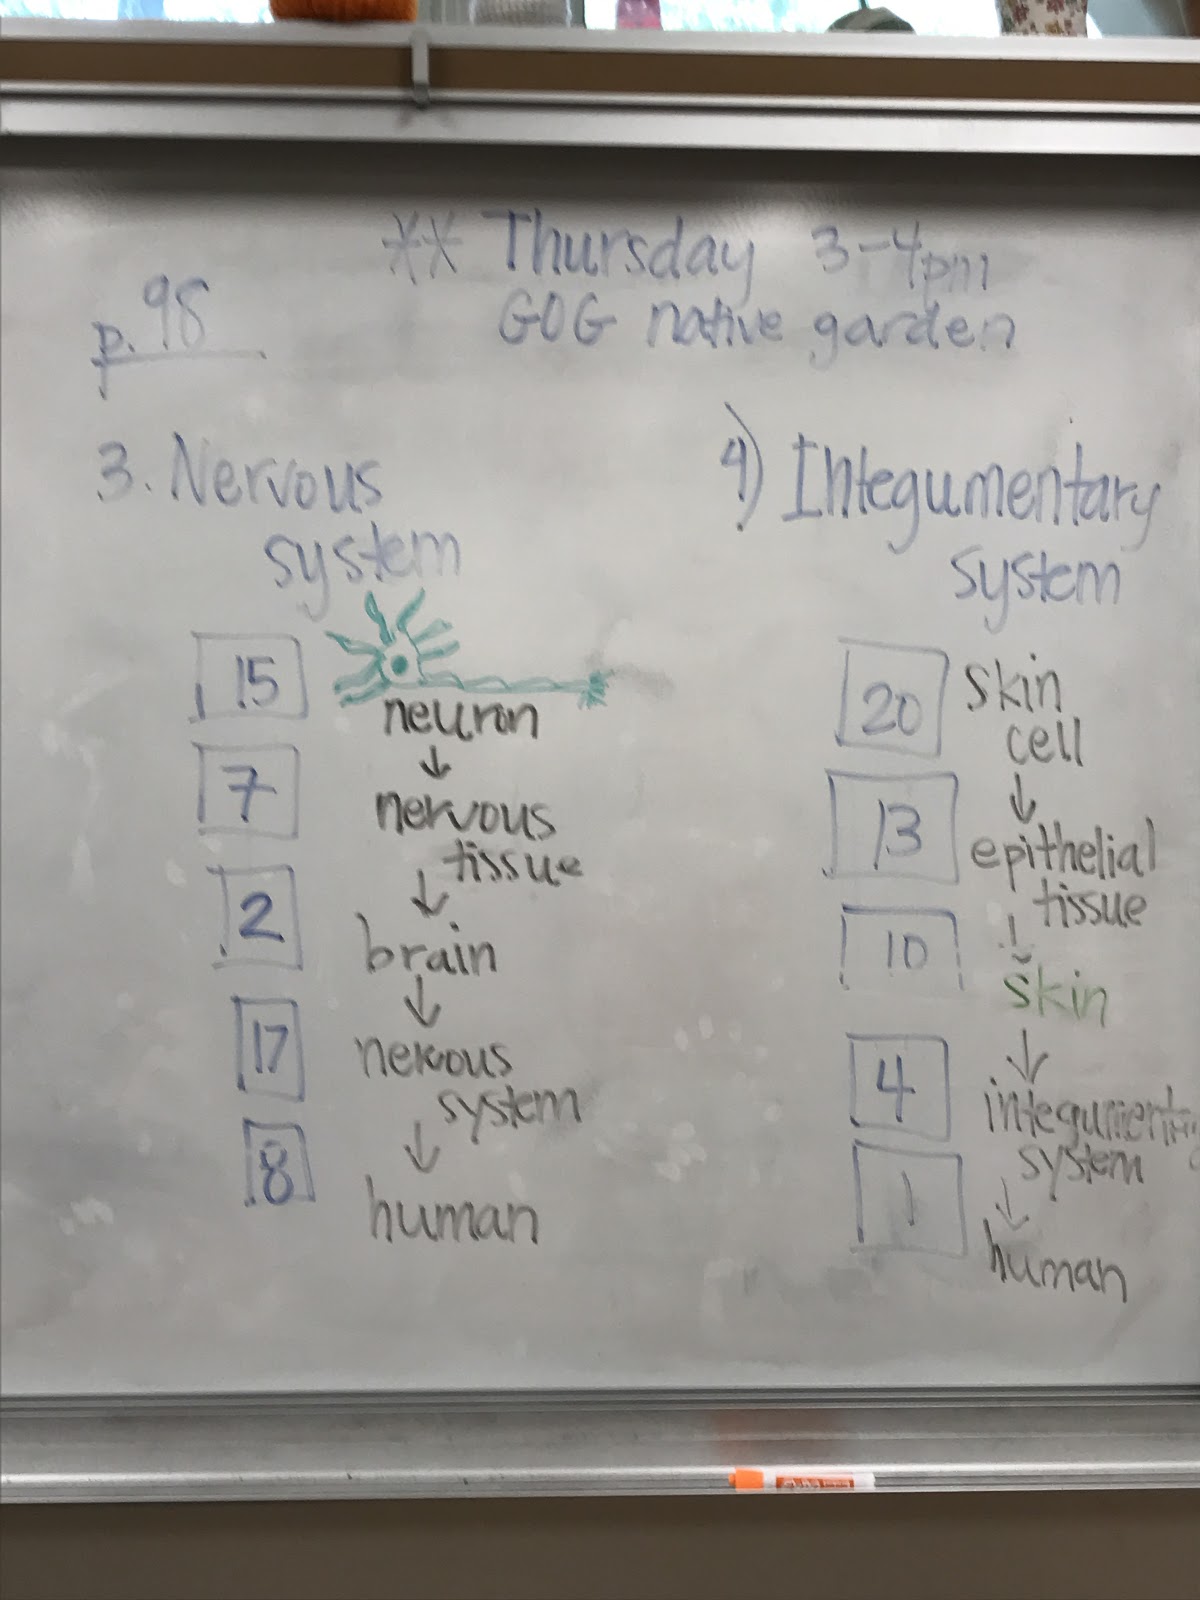 ** Thursday 3-4pm
GOG native garden
p. 98
3. Nervous
system
15
neuron
↓
7
nervous
tissue
↓
2
brain
↓
17
nervous
system
↓
8
human
4) Integumentary
system
20
skin
cell
↓
13
epithelial
tissue
↓
10
skin
↓
4
system
↓
1
human